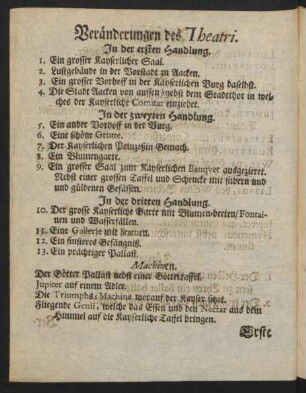 Veränderungen des Theatri.
In der ersten Handlung.
1. Ein grosser Kayserlicher Saal.
2. Lustgebäude in der Vorstadt zu Aacken.
3. Ein grosser Vorhoff in der Kayserlichen Burg daselbst.
4. Die Stadt Aacken von aussen / nebst dem Stadtthor in wel-
ches der Kayserliche Comitat einziehet.
In der zweyten Handlung.
5. Ein ander Vorhoff in der Burg.
6. Eine schöne Grotte.
7. Der Kayserlichen Printzeßin Gemach.
8. Ein Blumengarte.
9. Ein grosser Saal zum Kayserlichen Banqvet ausgezieret.
Nebst einer grossen Taffel und Schencke mit silbern und
und güldenen Gefässen.
In der dritten Handlung.
10. Der grosse Kayserliche Garte mit Blumen-betten / Fontai-
nen und Wasserfällen.
11. Eine Gallerie mit Statuen.
12. Ein finsteres Gefängniß.
13. Ein prächtiger Pallast.
Machinen.
Der Götter Pallast nebst einer Göttertaffel.
Jupiter auf einem Adler.
Die Triumphs-Machine worauf der Kayser sitzet.
Fliegende Genii, welche das Essen und den Nectar aus dem
Himmel auf die Kayserliche Taffel bringen.
Erste